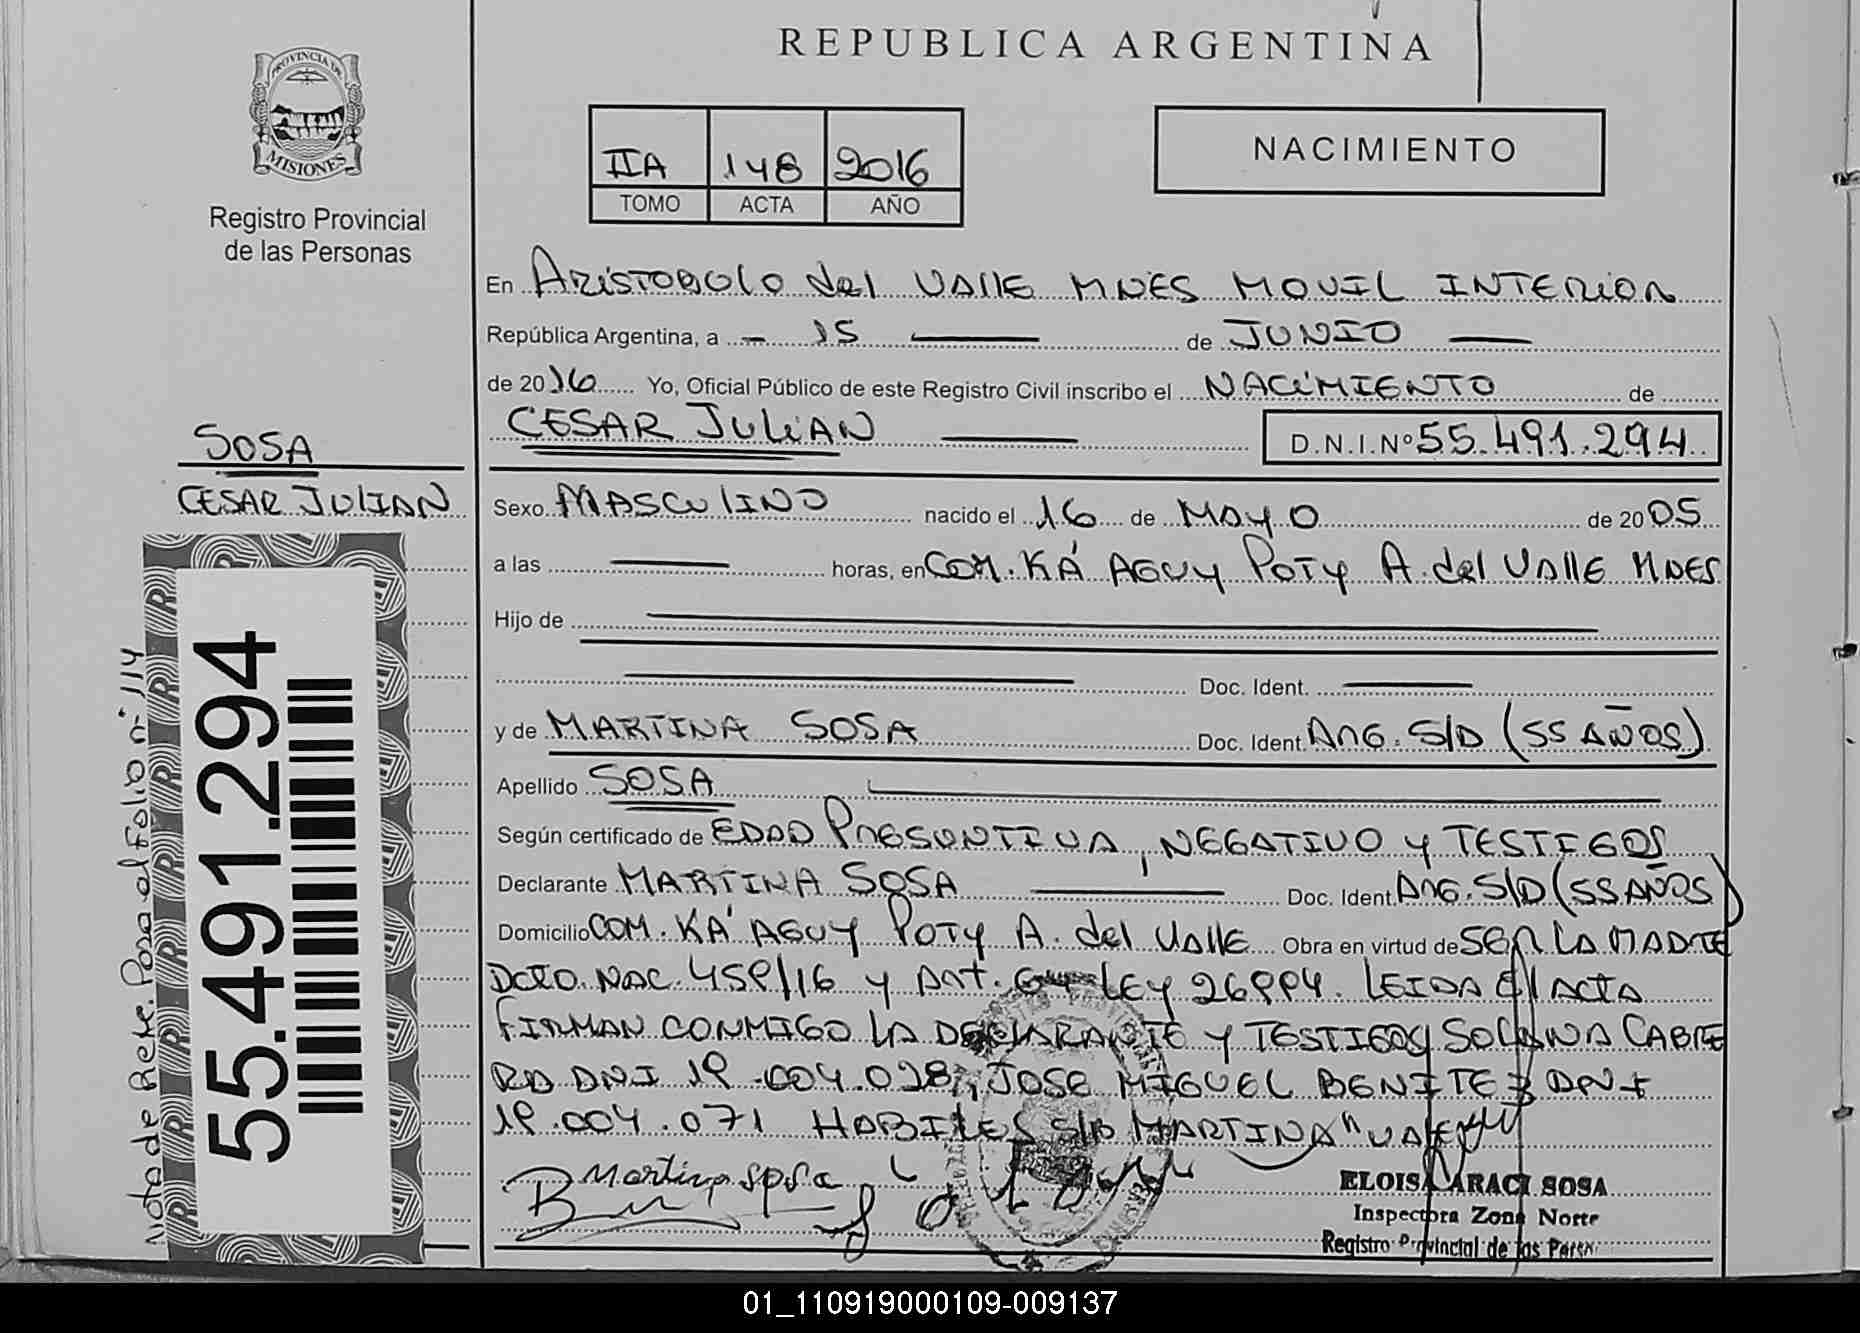 REPUBLICA ARGENTINA
PROVINCIA DE
MISIONES
Registro Provincial
de las Personas
IIA 148 2016
TOMO ACTA AÑO
NACIMIENTO
En ARISTOBULO del VALLE MNES MOVIL INTERIOR
República Argentina, a - 15 de JUNIO
de 2016 Yo, Oficial Público de este Registro Civil inscribo el NACIMIENTO de
CESAR JULIAN D.N.I.Nº 55.491.294
SOSA
CESAR JULIAN
Sexo MASCULINO nacido el 16 de MAYO de 2005
a las horas, en COM. KÁ AGUY POTY A. del VALLE MNES
Hijo de
Doc. Ident.
y de MARTINA SOSA Doc. Ident. ARG. S/D (55 AÑOS)
Apellido SOSA
Según certificado de EDAD PRESUNTIVA, NEGATIVO y TESTIGOS
Declarante MARTINA SOSA Doc. Ident. ARG. S/D (55 AÑOS)
Domicilio COM. KÁ AGUY POTY A. del VALLE Obra en virtud de SER LA MADRE
DCTO. NAC. 459/16 y ART. LEY 26994. LEIDA el ACTA
FIRMAN CONMIGO LA DECLARANTE Y TESTIGOS SOLANA CABRE
RA DNI 19.004.028, JOSE MIGUEL BENITEZ DNI
19.004.071 HABILES S/B MARTINA "VALE"
Martina sosa
ELOISA ARACI SOSA
Inspectora Zona Norte
Registro Provincial de las Pers.
Nota de Refe. Pasa al Folio nº 114
55.491.294
01_110919000109-009137